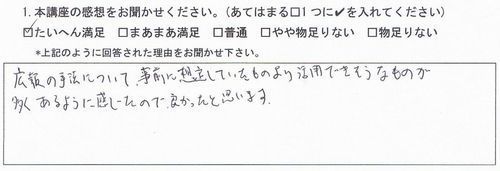 1. 本講座の感想をお聞かせください。(あてはまる□1つに✔を入れてください)
☑たいへん満足 □まあまあ満足 □普通 □やや物足りない □物足りない
*上記のように回答された理由をお聞かせ下さい。
広報の手法について、事前に想定していたものより活用できそうなものが
多くあるように感じたので良かったと思います。